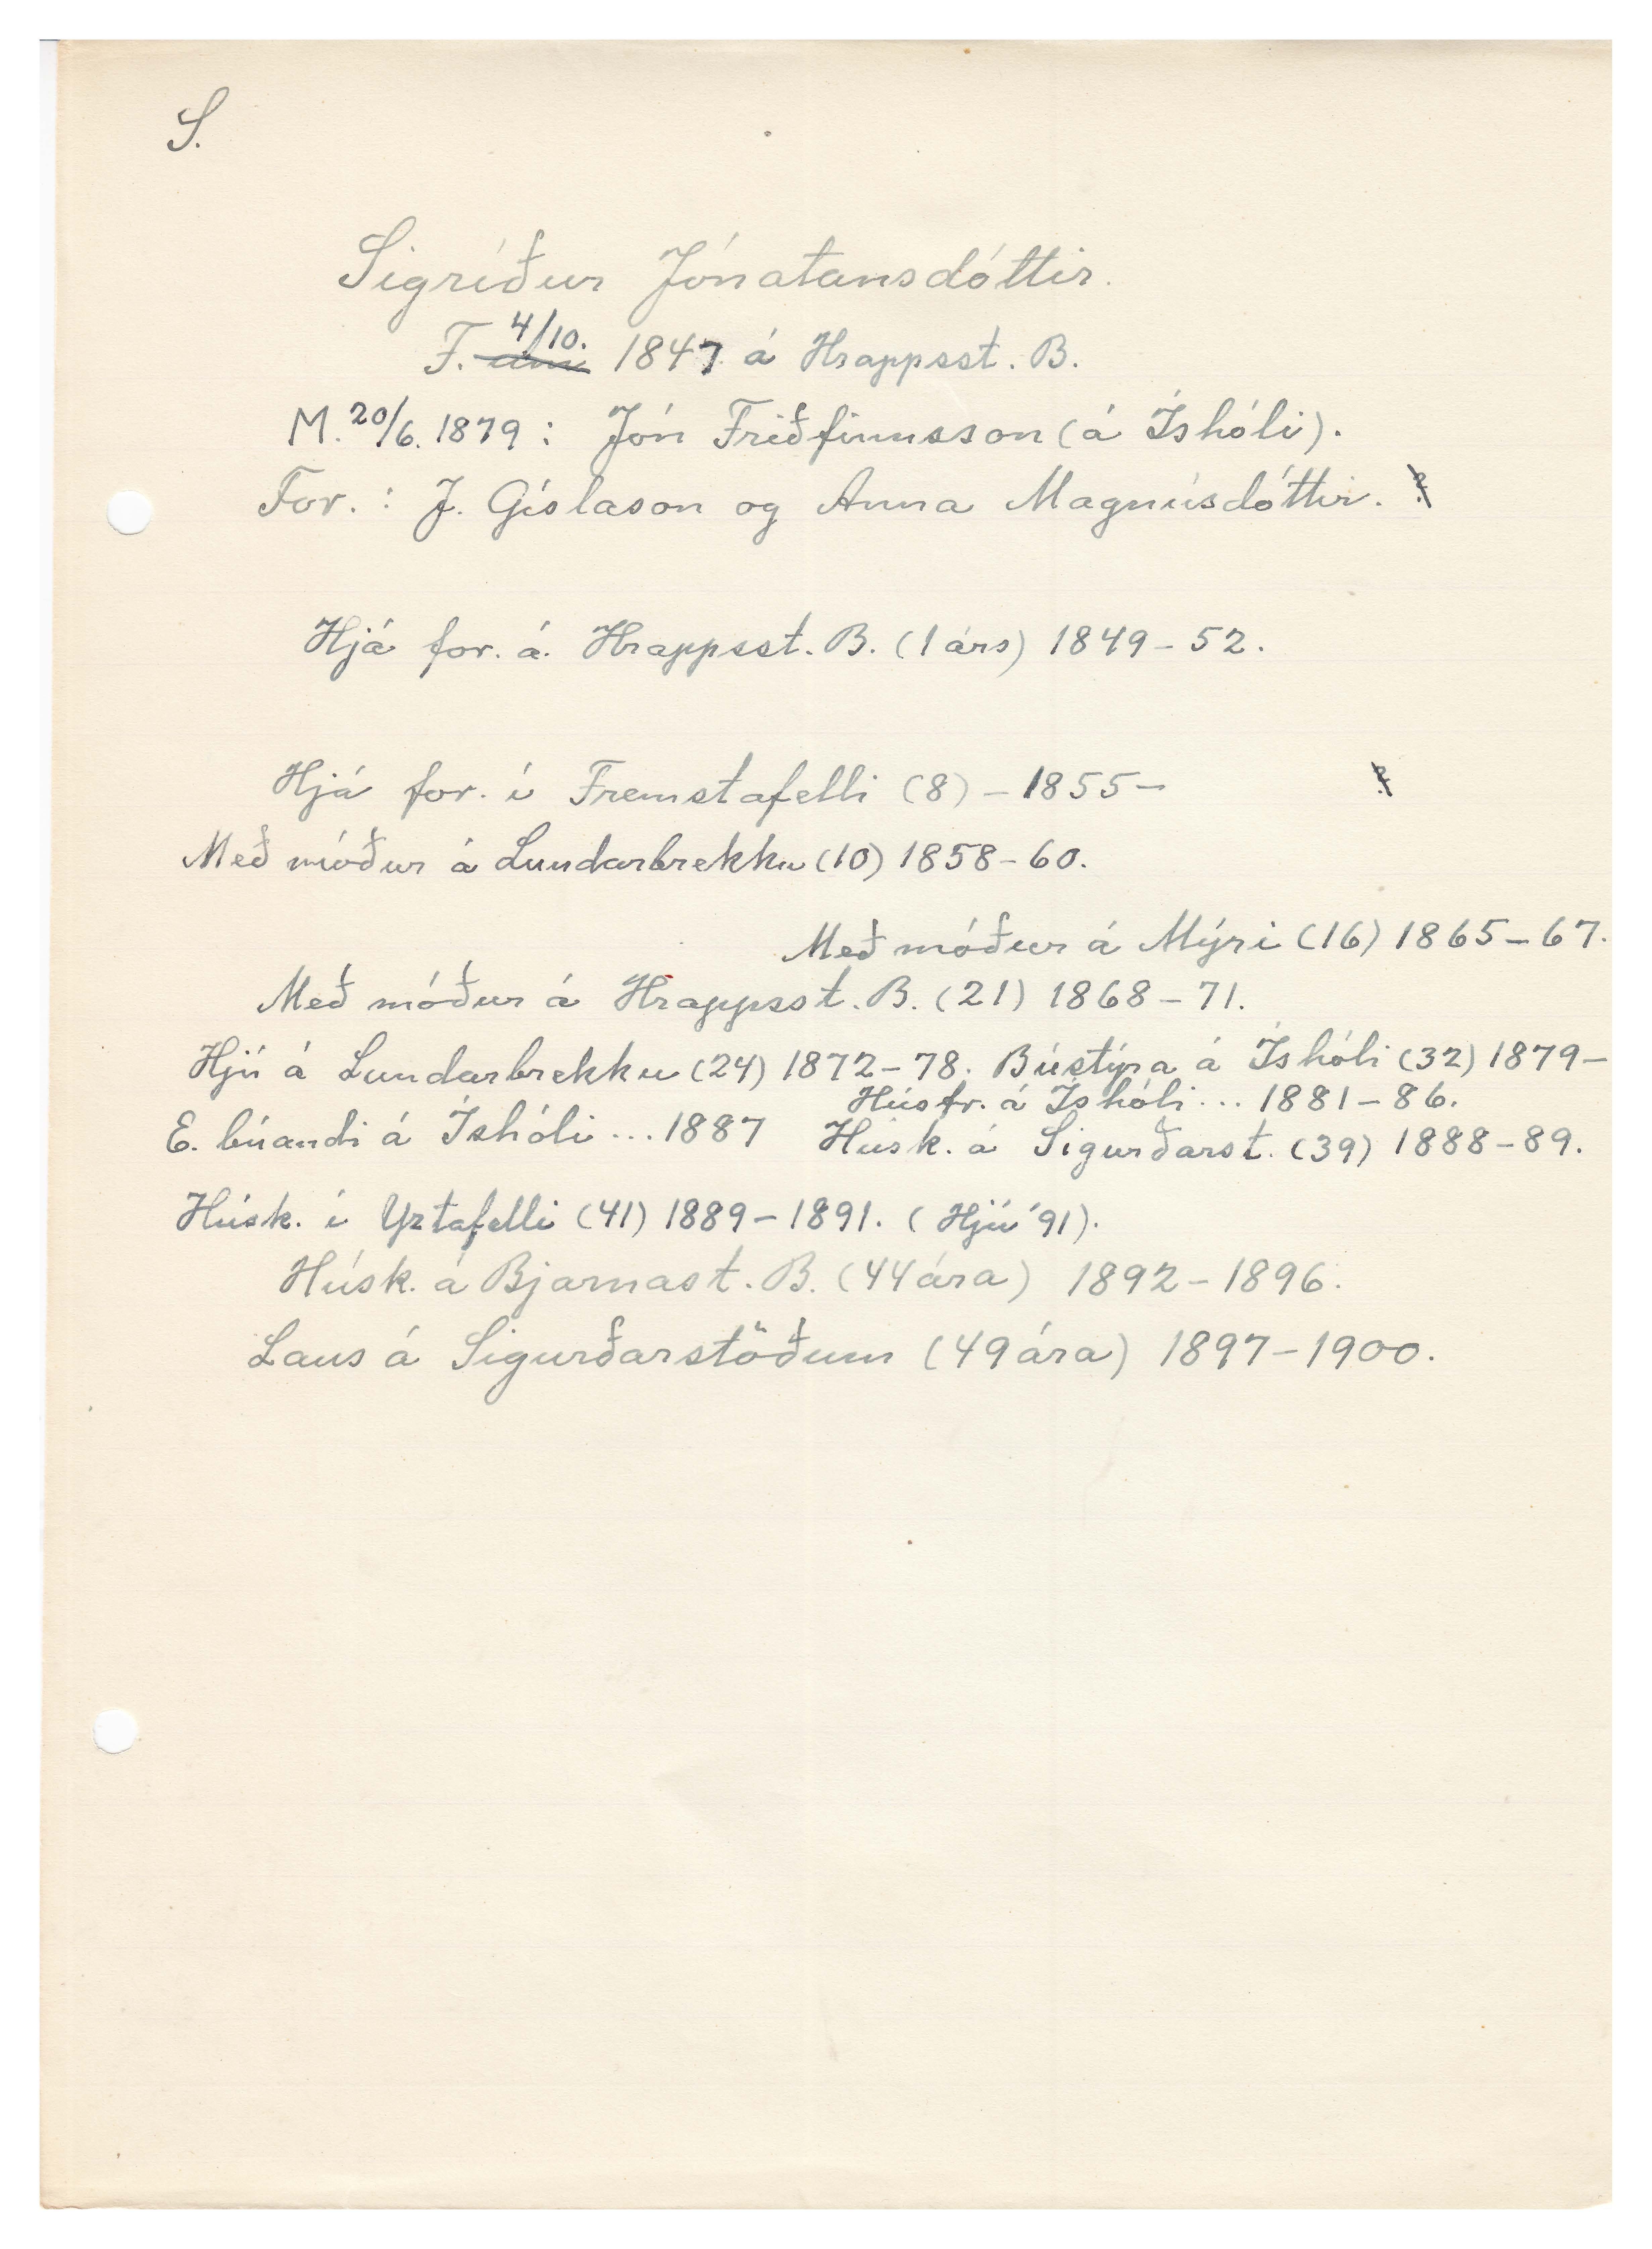 S.
Sigríður Jónatansdóttir.
F. 4/10. 1847 á Hrappsst. B.
M. 20/6. 1879 : Jón Friðfinnsson (á Íshóli).
For. : J. Gíslason og Anna Magnúsdóttir.
Hjá for. á. Hrappsst. B. (1 árs) 1849 - 52.
Hjá for. í Fremstafelli (8) - 1855 -
Með móður á Lundarbrekku (10) 1858 - 60.
Með móður á Mýri (16) 1865 - 67.
Með móður á Hrappsst. B. (21) 1868 - 71.
Hjú á Lundarbrekku (24) 1872 - 78. Bústýra á Íshóli (32) 1879 -
Húsfr. á Íshóli ... 1881 - 86.
E. búandi á Íshóli ... 1887 Húsk. á Sigurðarst. (39) 1888 - 89.
Húsk. í Yztafelli (41) 1889 - 1891. (Hjú '91).
Húsk. á Bjarnast. B. (44 ára) 1892 - 1896.
Laus á Sigurðarstöðum (49 ára) 1897 - 1900.